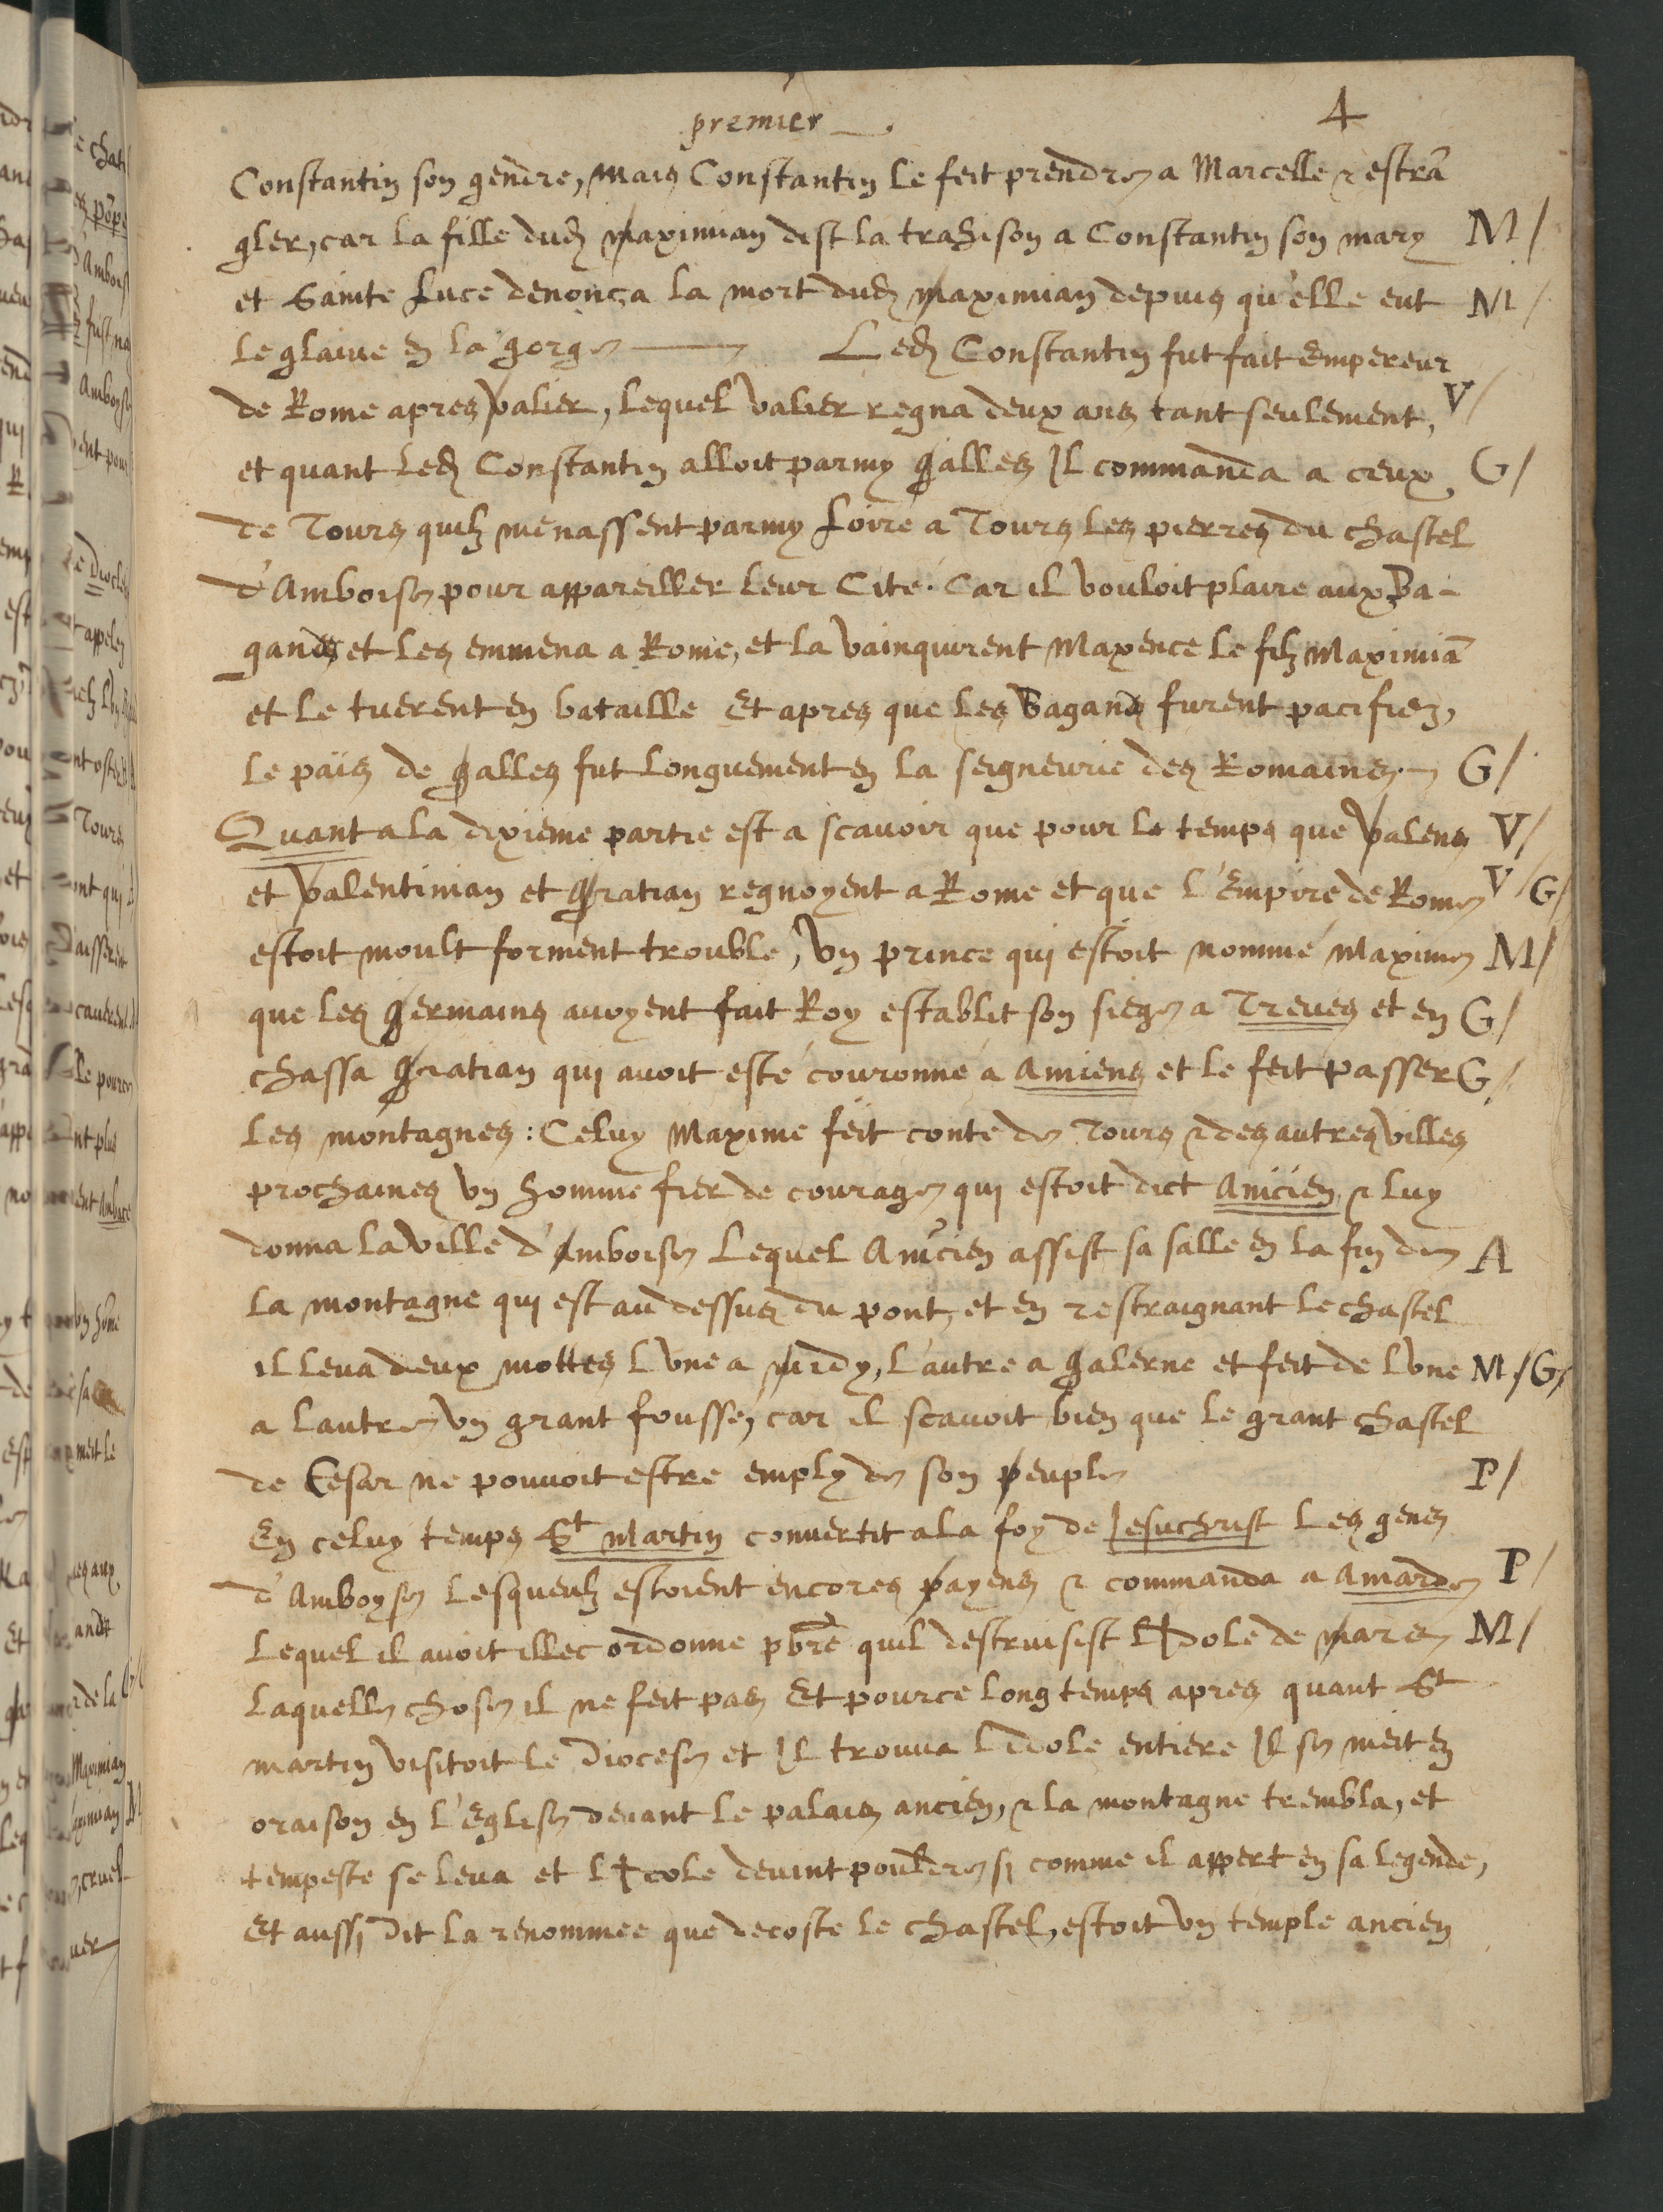 premier
4
Constantin son gendre, mais Constantin le feit prendre a Marcelle & estrã
gler, car la fille dud maximian dist la trahison a Constantin son mary M/
et Sainte Luce denonça la mort dud maximian depuis qu'elle eut M/
le glaive en la gorge — Led Constantin fut fait Empereur
de Rome apres valier, lequel valier regna deux ans tant seulement, V/
et quant led Constantin alloit parmy galles Il commanda a ceux G/
de Tours quilz menassent parmy Loire a Tours les pierres du chastel
d'Amboise pour appareiller leur Cite. Car il vouloit plaire aux Ba-
gands et les emmena a Rome, et la vainquirent Maxence le filz Maximiã
et le tuerent en bataille Et apres que les Bagands furent pacifiez,
le païs de galles fut longuement en la seigneurie des Romains. G/
Quant a la dixieme partie est a scavoir que pour le temps que valens V/
et valentinian et gratian regnoyent a Rome et que l'Empire de Rome V/G/
estoit moult forment trouble, un prince qui estoit nommé maxime M/
que les germains avoyent fait Roy establit son siege a Treves et en G/
chassa gratian qui avoit esté couronné a Amiens et le feit passer G/
les montagnes: Celuy Maxime feit conte de Tours & des autres villes
prochaines un homme fier de courage qui estoit dict Anicien & luy
donna la ville d'Amboise lequel Anicien assist sa salle en la fin de A
la montagne qui est au dessus du pont, et en restraignant le chastel
il leva deux mottes lune a midy, l'autre a galerne et feit de lune M/G/
a lautre un grant fousse, car il scavoit bien que le grant chastel
de Cesar ne pouvoit estre emply de son peuple P/
En celuy temps St Martin convertit a la foy de Jesuchrist les gens
d'Amboyse lesquelz estoient encores payens & commanda a Amarde P/
lequel il avoit illec ordonne pbre quil destruisist lYdole de mars M/
laquelle chose il ne feit pas Et pource long temps apres quant St
martin visitoit le diocese et Il trouva lidole entiere Il se meit en
oraison en l'Eglise devant le palais ancien, & la montagne trembla, et
tempeste se leva et lYdole devint pouldre si comme il appert en sa legende,
Et aussi dit la renommee que decoste le chastel, estoit un temple ancien